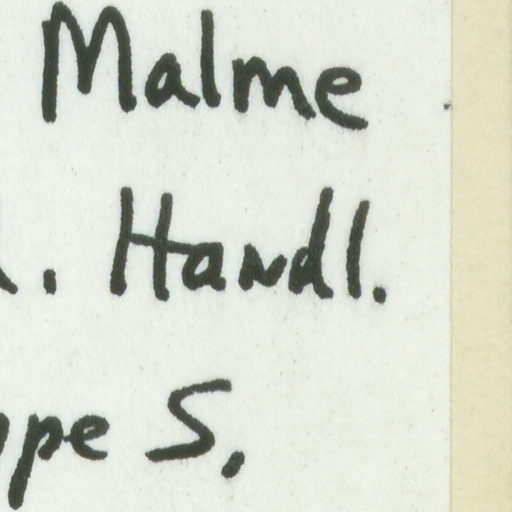 Malme
. Handl.
pe S,